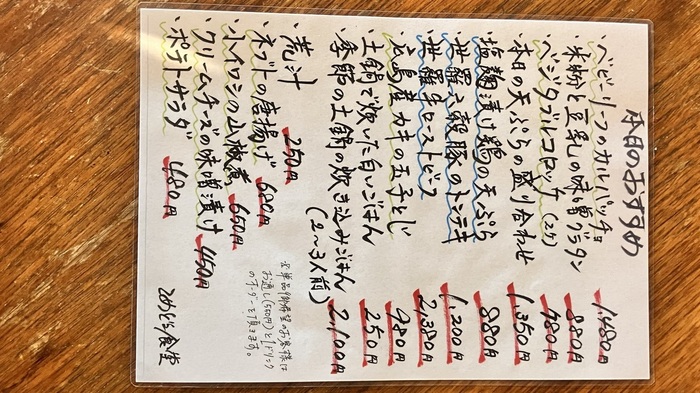 本日のおすすめ
・ベビーリーフのカルパッチョ 1,480円
・米粉と豆乳の味噌グラタン 880円
・ベジタブルコロッケ(2ケ) 480円
・本日の天ぷらの盛り合わせ 1,350円
・塩麹漬け鶏の天ぷら 880円
・世羅六穀豚のトンテキ 1,200円
・世羅牛ローストビーフ 2,380円
・広島産カキの玉子とじ 980円
・土鍋で炊いた白いごはん 250円
・季節の土鍋の炊き込みごはん(2〜3人前) 2,100円
・荒汁 250円
・ネブトの唐揚げ 680円
・小イワシの山椒煮 650円
・クリームチーズの味噌漬け 450円
・ポテトサラダ 480円
※単品御希望のお客様は
お通し(550円)と1ドリンク
のオーダーを頂きます。
食堂